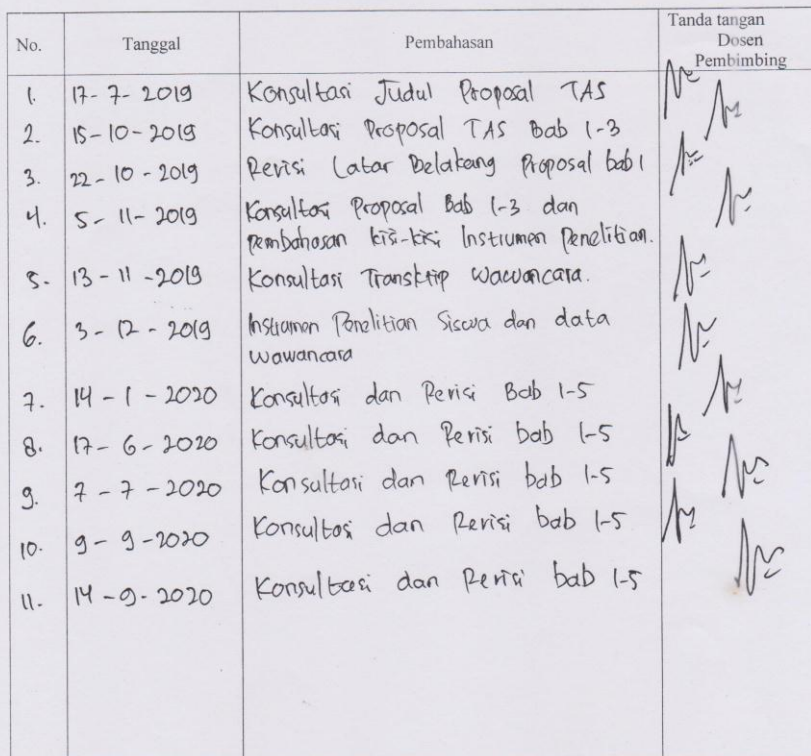 No. Tanggal Pembahasan Tanda tangan
Dosen
Pembimbing
1. 17-7-2019 Konsultasi Judul Proposal TAS
2. 15-10-2019 Konsultasi Proposal TAS Bab 1-3
3. 22-10-2019 Revisi Latar Belakang Proposal bab 1
4. 5-11-2019 Konsultasi Proposal Bab 1-3 dan
pembahasan kisi-kisi Instrumen Penelitian.
5. 13-11-2019 Konsultasi Transkrip Wawancara.
6. 3-12-2019 Instrumen Penelitian Siswa dan data
wawancara
7. 14-1-2020 Konsultasi dan Revisi Bab 1-5
8. 17-6-2020 Konsultasi dan Revisi bab 1-5
9. 7-7-2020 Konsultasi dan Revisi bab 1-5
10. 9-9-2020 Konsultasi dan Revisi bab 1-5
11. 14-9-2020 Konsultasi dan Revisi bab 1-5